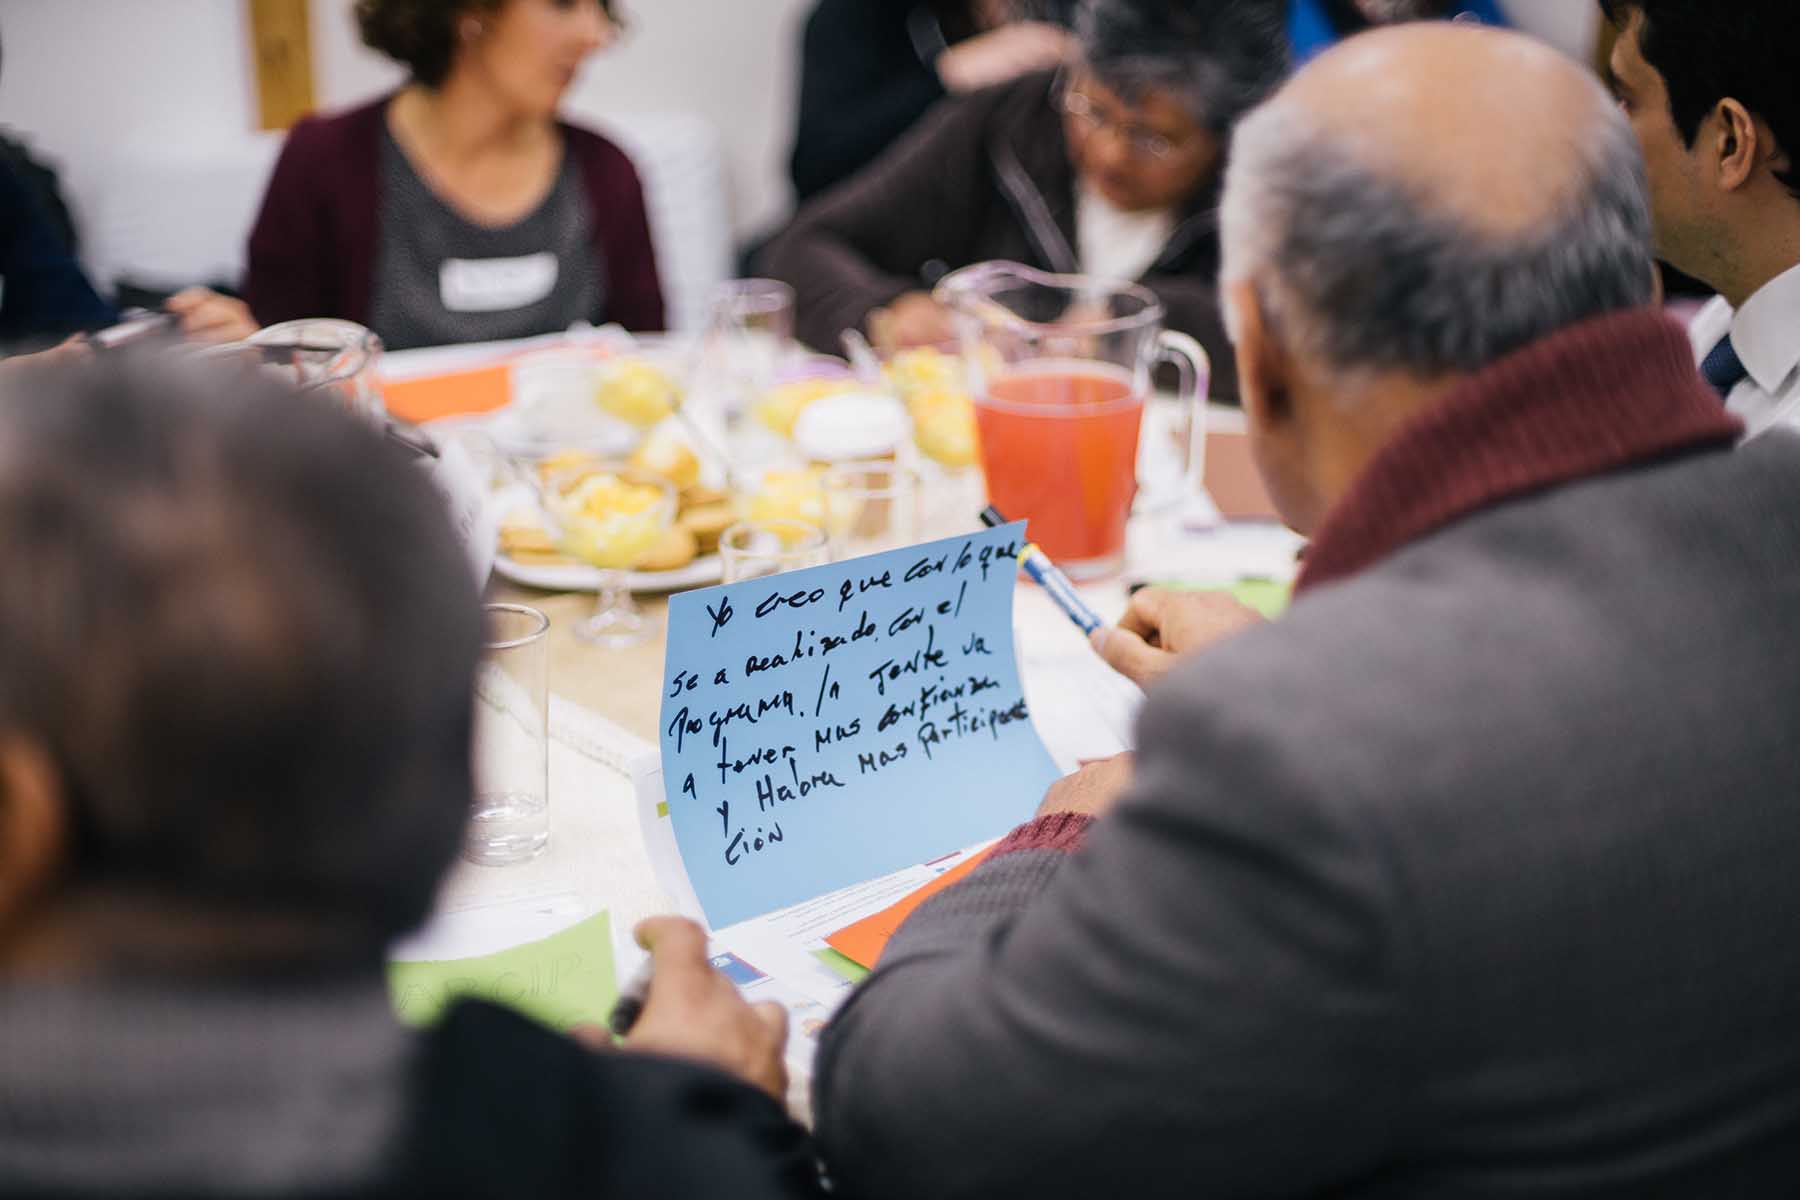 Yo creo que con lo que
se a realizado. con el
programa. la Jente va
a tener mas confianza
y Habra mas participa
ción